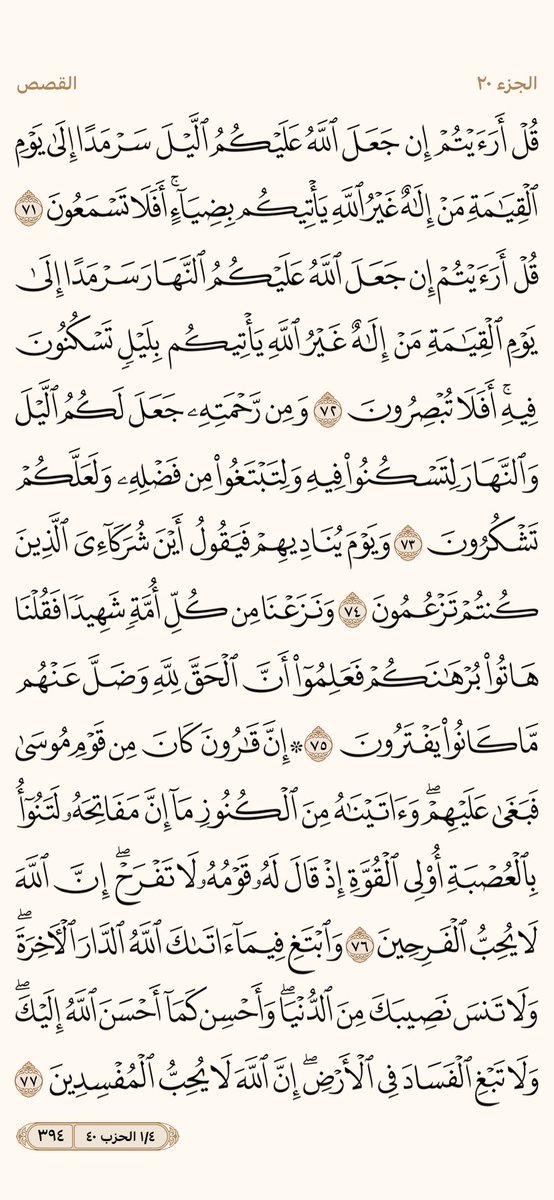 الجزء ٢٠
القصص
قُلْ أَرَءَيْتُمْ إِن جَعَلَ ٱللَّهُ عَلَيْكُمُ ٱلَّيْلَ سَرْمَدًا إِلَىٰ يَوْمِ
ٱلْقِيَـٰمَةِ مَنْ إِلَـٰهٌ غَيْرُ ٱللَّهِ يَأْتِيكُم بِضِيَآءٍ ۚ أَفَلَا تَسْمَعُونَ ٧١
قُلْ أَرَءَيْتُمْ إِن جَعَلَ ٱللَّهُ عَلَيْكُمُ ٱلنَّهَارَ سَرْمَدًا إِلَىٰ
يَوْمِ ٱلْقِيَـٰمَةِ مَنْ إِلَـٰهٌ غَيْرُ ٱللَّهِ يَأْتِيكُم بِلَيْلٍ تَسْكُنُونَ
فِيهِ ۚ أَفَلَا تُبْصِرُونَ ٧٢ وَمِن رَّحْمَتِهِۦ جَعَلَ لَكُمُ ٱلَّيْلَ
وَٱلنَّهَارَ لِتَسْكُنُوا۟ فِيهِ وَلِتَبْتَغُوا۟ مِن فَضْلِهِۦ وَلَعَلَّكُمْ
تَشْكُرُونَ ٧٣ وَيَوْمَ يُنَادِيهِمْ فَيَقُولُ أَيْنَ شُرَكَآءِىَ ٱلَّذِينَ
كُنتُمْ تَزْعُمُونَ ٧٤ وَنَزَعْنَا مِن كُلِّ أُمَّةٍ شَهِيدًا فَقُلْنَا
هَاتُوا۟ بُرْهَـٰنَكُمْ فَعَلِمُوٓا۟ أَنَّ ٱلْحَقَّ لِلَّهِ وَضَلَّ عَنْهُم
مَّا كَانُوا۟ يَفْتَرُونَ ٧٥ ۞ إِنَّ قَـٰرُونَ كَانَ مِن قَوْمِ مُوسَىٰ
فَبَغَىٰ عَلَيْهِمْ ۖ وَءَاتَيْنَـٰهُ مِنَ ٱلْكُنُوزِ مَآ إِنَّ مَفَاتِحَهُۥ لَتَنُوٓأُ
بِٱلْعُصْبَةِ أُو۟لِى ٱلْقُوَّةِ إِذْ قَالَ لَهُۥ قَوْمُهُۥ لَا تَفْرَحْ ۖ إِنَّ ٱللَّهَ
لَا يُحِبُّ ٱلْفَرِحِينَ ٧٦ وَٱبْتَغِ فِيمَآ ءَاتَىٰكَ ٱللَّهُ ٱلدَّارَ ٱلْـَٔاخِرَةَ ۖ
وَلَا تَنسَ نَصِيبَكَ مِنَ ٱلدُّنْيَا ۖ وَأَحْسِن كَمَآ أَحْسَنَ ٱللَّهُ إِلَيْكَ ۖ
وَلَا تَبْغِ ٱلْفَسَادَ فِى ٱلْأَرْضِ ۖ إِنَّ ٱللَّهَ لَا يُحِبُّ ٱلْمُفْسِدِينَ ٧٧
١/٤ الحزب ٤٠
٣٩٤